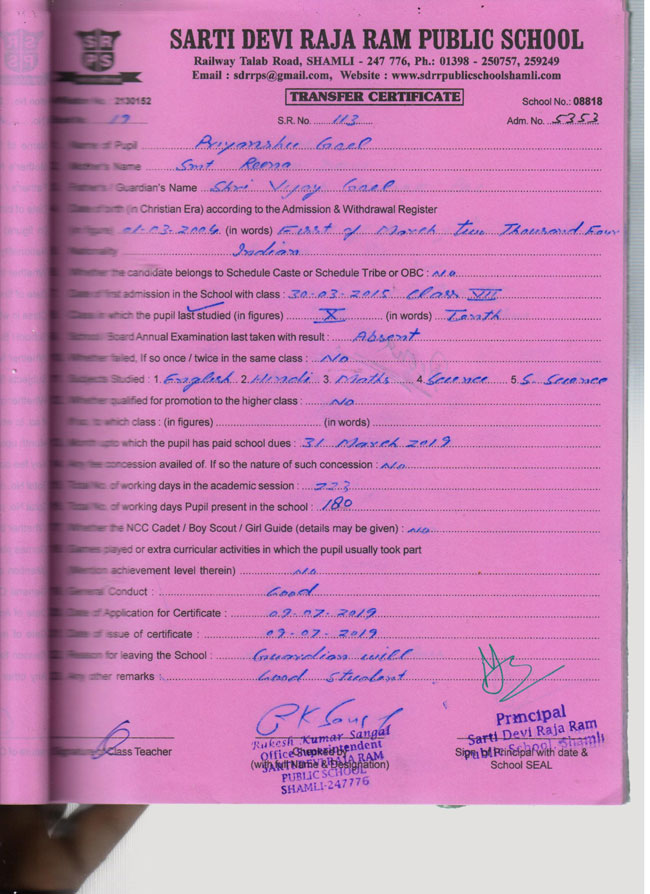 SRPS
SARTI DEVI RAJA RAM PUBLIC SCHOOL
Railway Talab Road, SHAMLI - 247 776, Ph.: 01398 - 250757, 259249
Email : sdrrps@gmail.com, Website : www.sdrrpublicschoolshamli.com
Affiliation No. 2130152
TRANSFER CERTIFICATE
School No.: 08818
19 S.R. No. 113 Adm. No. 5353
Name of Pupil Priyanshu Goel
Mother's Name Smt Reena
Father's / Guardian's Name Shri Vijay Goel
Date of birth (in Christian Era) according to the Admission & Withdrawal Register
(in figure) 01-03-2004 (in words) First of March two Thousand Four
Nationality Indian
Whether the candidate belongs to Schedule Caste or Schedule Tribe or OBC : No
Date of first admission in the School with class : 30-03-2015 Class VII
Class in which the pupil last studied (in figures) X (in words) Tenth
School / Board Annual Examination last taken with result : Absent
Whether failed, If so once / twice in the same class : No
Subjects Studied : 1. English 2. Hindi 3. Maths 4 Science 5 S. Science
Whether qualified for promotion to the higher class : No
to which class : (in figures) (in words)
Month upto which the pupil has paid school dues : 31 March 2019
Any fee concession availed of. If so the nature of such concession : No
Total No. of working days in the academic session : 223
Total No. of working days Pupil present in the school : 180
Whether the NCC Cadet / Boy Scout / Girl Guide (details may be given) : No
Games played or extra curricular activities in which the pupil usually took part
(Mention achievement level therein) No
General Conduct : Good
Date of Application for Certificate : 09-07-2019
Date of issue of certificate : 09-07-2019
Reason for leaving the School : Guardian will
Any other remarks : Good Student
Principal
Sarti Devi Raja Ram
Public School, Shamli
Rakesh Kumar Sangal
Office Superintendent
SARTI DEVI RAJA RAM
PUBLIC SCHOOL
SHAMLI-247776
Signature of Class Teacher
Checked by
(with full Name & Designation)
Sign. of Principal with date &
School SEAL